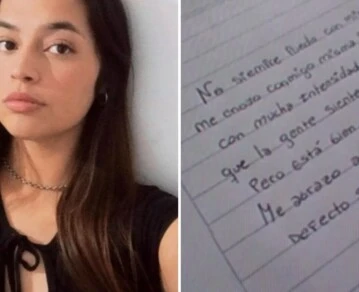 No siempre puedo con mi
me enojo conmigo misma
con mucha intensidad
que la gente siente
Pero está bien
Me abrazo
Defecto